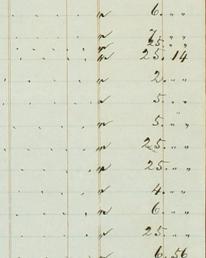 " 6. " "
" 7. " "
" 25. " "
" 25. 14
" 2. " "
" 5. " "
" 5. " "
" 25. " "
" 25. " "
" 4. " "
" 6. " "
" 25. " "
" 6. 56